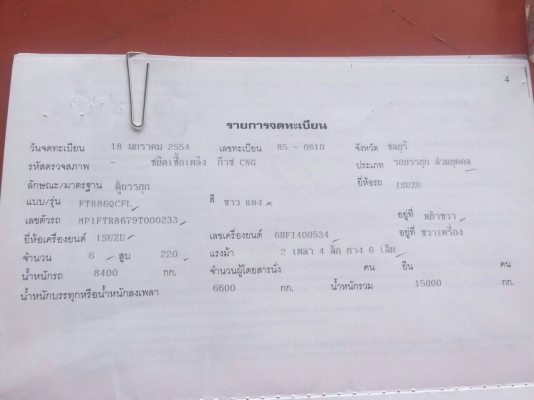 4
รายการจดทะเบียน
วันจดทะเบียน 18 มกราคม 2554 เลขทะเบียน 85 - 0610 จังหวัด ชลบุรี
รหัสตรวจสภาพ - ชนิดเชื้อเพลิง ก๊าซ CNG ประเภท รถบรรทุก ส่วนบุคคล
ลักษณะ/มาตรฐาน ตู้บรรทุก ยี่ห้อรถ ISUZU
แบบ/รุ่น FTR86QCFL สี ขาว แดง
เลขตัวรถ MP1FTR8679T000233 อยู่ที่ หน้าขวา
ยี่ห้อเครื่องยนต์ ISUZU เลขเครื่องยนต์ 6HF1400534 อยู่ที่ ขวาเครื่อง
จำนวน 6 สูบ 220 แรงม้า 2 เพลา 4 ล้อ ยาง 6 เส้น
น้ำหนักรถ 8400 กก. จำนวนผู้โดยสารนั่ง คน ยืน คน
น้ำหนักบรรทุกหรือน้ำหนักลงเพลา 6600 กก. น้ำหนักรวม 15000 กก.